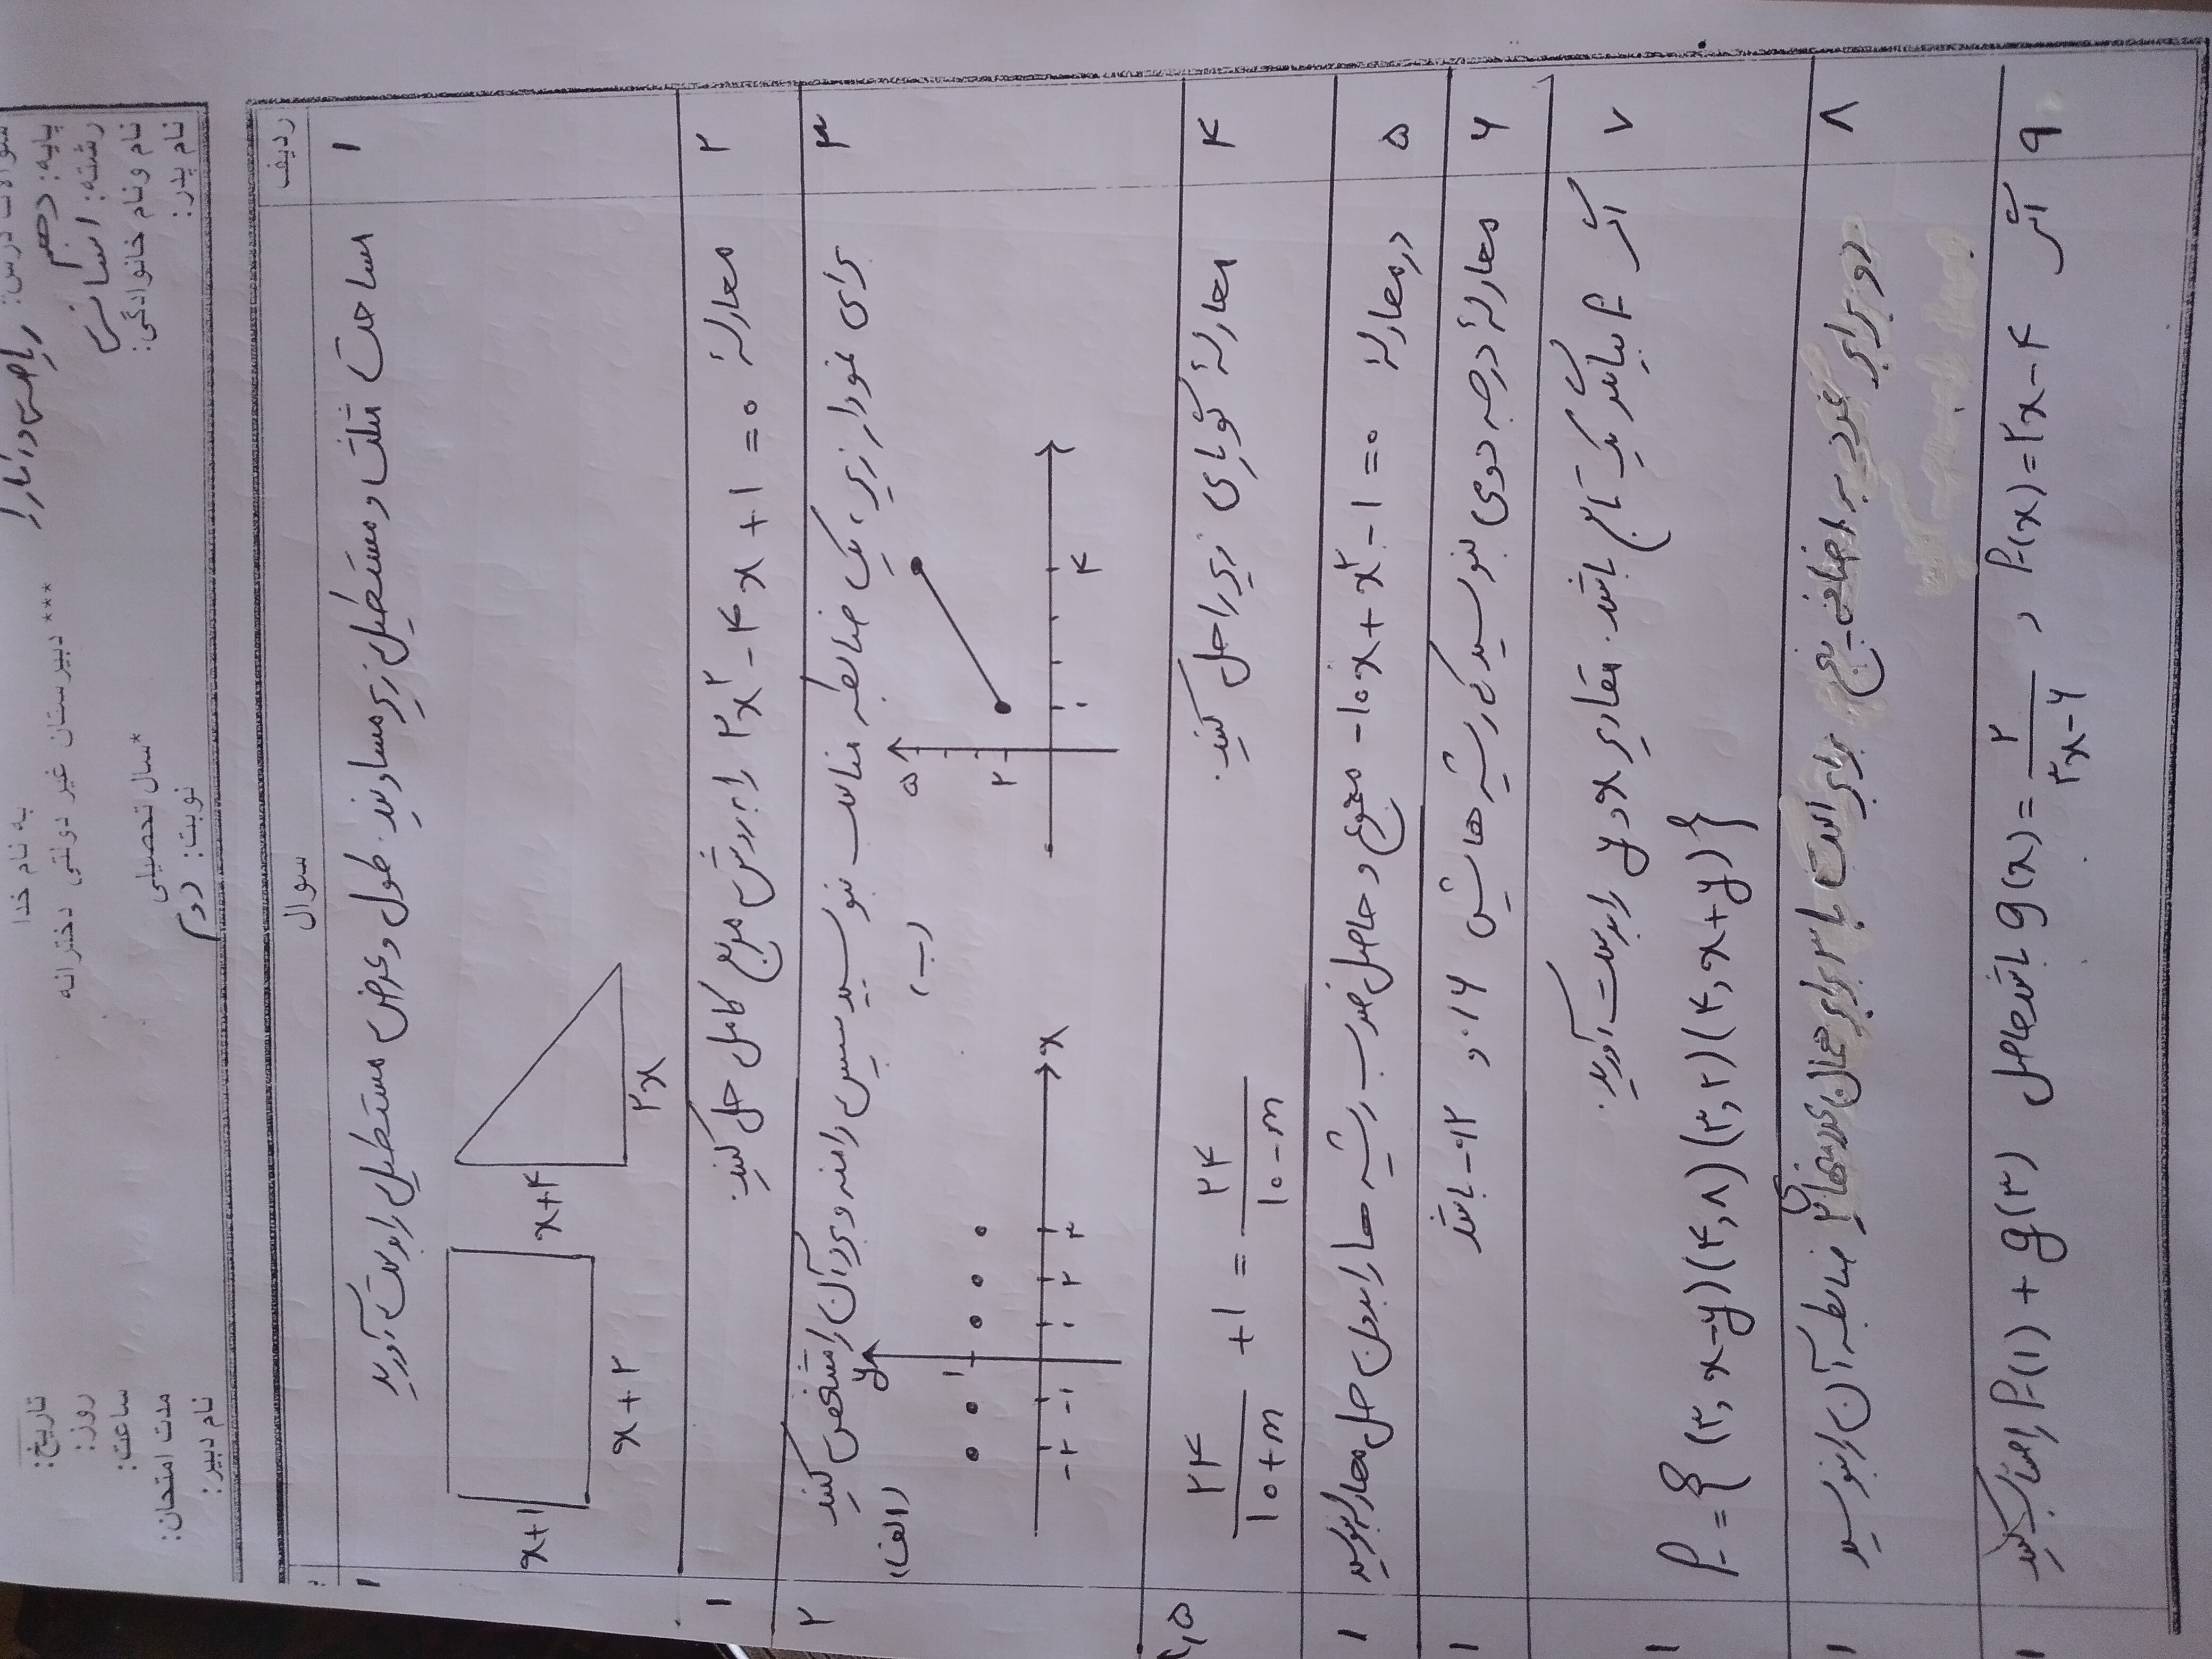 به نام خدا
سوالات درس: ریاضی و آمار ۱
*** دبیرستان غیر دولتی دخترانه
پایه: دهم
رشته: انسانی
نام ونام خانوادگی:
نام پدر:
*سال تحصیلی
نوبت: دوم
تاریخ:
روز:
ساعت:
مدت امتحان:
نام دبیر:
ردیف
سوال
۱
مساحت مثلث و مستطیل زیر مساویند. طول و عرض مستطیل را بدست آورید
۱
x+۱
x+۲
x+۴
۲x
۲
معادلهٔ ۲x²-۴x+۱=۰ را به روش مربع کامل حل کنید.
۱
۳
برای نمودار زیر، یک ضابطه مناسب بنویسید سپس دامنه و برد آن را مشخص کنید
۲
الف)
y
۱
-۲ -۱ ۱ ۲ ۳
x
ب)
۵
۲
۱ ۴
۴
معادلهٔ گویای زیر را حل کنید.
۲۴/(۱۰+m) +۱ = ۲۴/(۱۰-m)
۱,۵
۵
در معادلهٔ -۱۰x+x²-۱=۰ مجموع و حاصل ضرب ریشه ها را بدون حل معادله بنویسید
۱
۶
معادلهٔ درجه دومی بنویسید که ریشه هایش ۰/۶ و -۰/۲ باشد
۱
۷
اگر f بیانگر یک تابع باشد. مقادیر x و y را بدست آورید.
f={(۳,x-y)(۴,۸)(۳,۲)(۴,x+y)}
۱
۸
دو برابر عدد به اضافه پنج برابر است با ۳ برابر همان عدد منهای ۲ ضابطه آن را بنویسید
۱
۹
اگر f(x)=۲x-۴ و g(x)=۲/(۳x-۶) باشد حاصل f(۱)+g(۳) را حساب کنید
۱